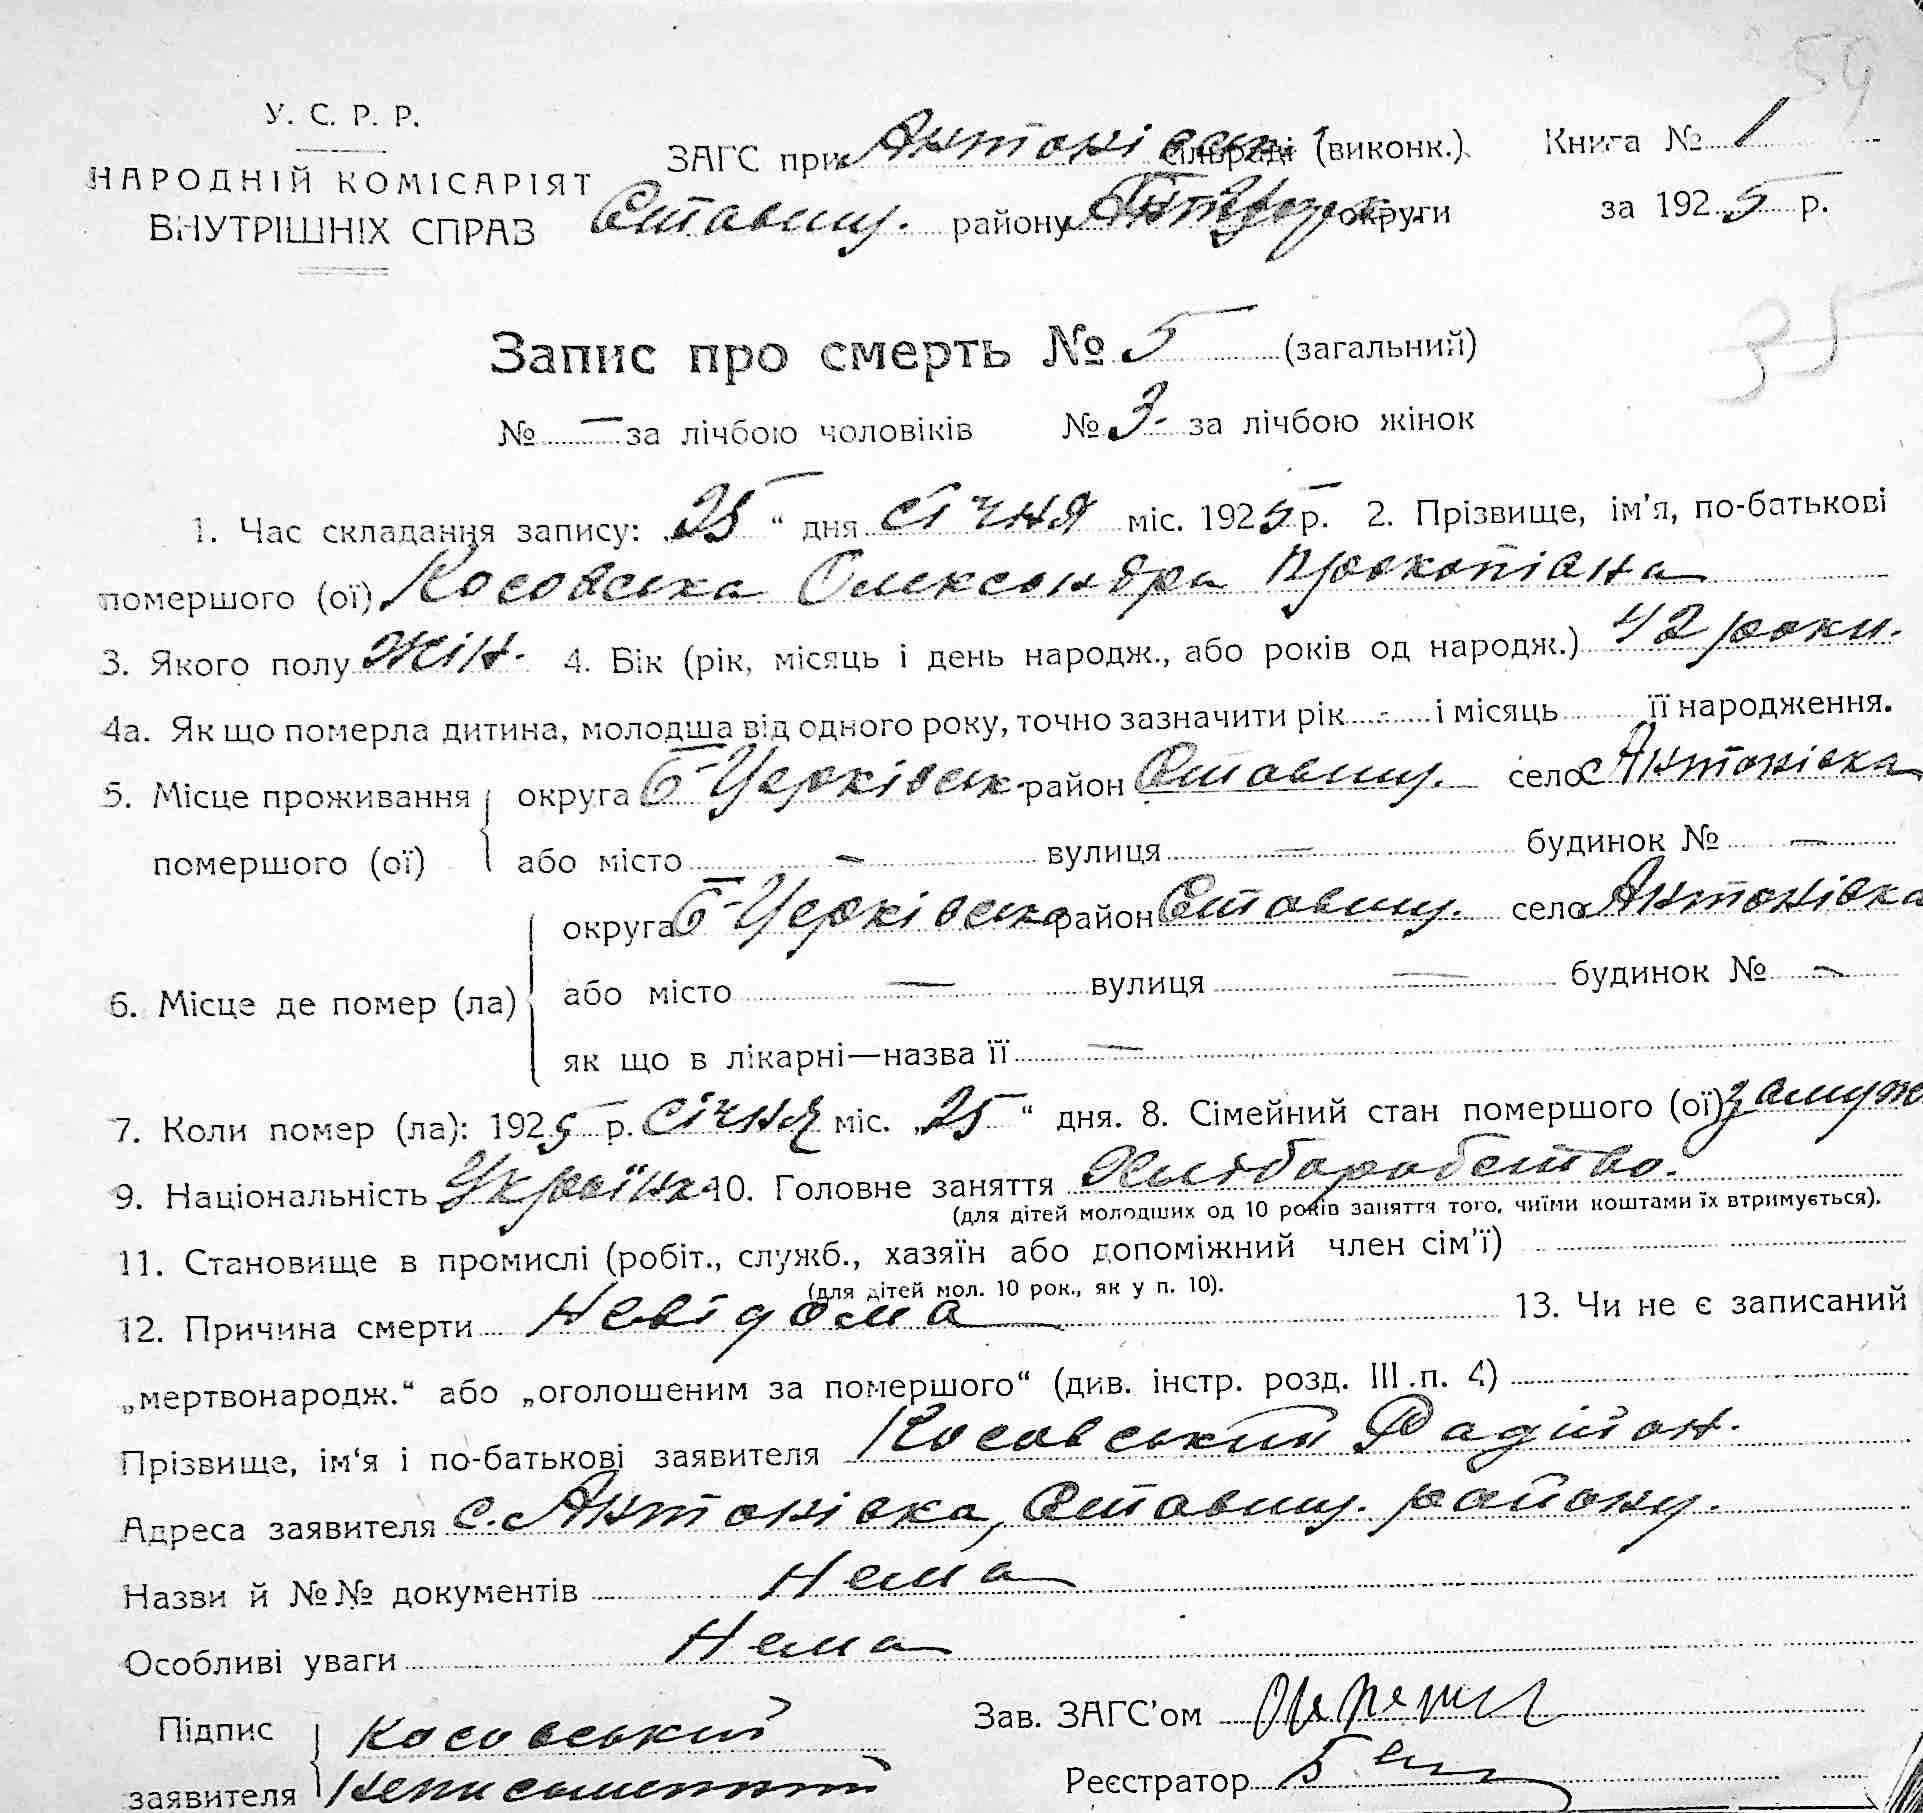 59
У. С. Р. Р.
НАРОДНІЙ КОМІСАРІЯТ
ВНУТРІШНІХ СПРАВ
ЗАГС при Антонівськ. сільраді (виконк.) Книга № 1
Ставищ. району округи за 1925 р.
35
Запис про смерть № 5 (загальний)
№ — за лічбою чоловіків № 3. за лічбою жінок
1. Час складання запису: „25“ дня січня міс. 1925 р. 2. Прізвище, ім'я, по-батькові
помершого (ої) Косовська Олександра Прокопівна
3. Якого полу жін. 4. Вік (рік, місяць і день народж., або років од народж.) 42 роки.
4а. Як що померла дитина, молодша від одного року, точно зазначити рік - і місяць її народження.
5. Місце проживання округа Б-Церківськ. район Ставищ. село Антонівка
помершого (ої) або місто — вулиця — будинок № —
округа Б-Церківська район Ставищ. село Антонівка
6. Місце де помер (ла) або місто — вулиця — будинок № —
як що в лікарні—назва її —
7. Коли помер (ла): 1925 р. січня міс. „25“ дня. 8. Сімейний стан помершого (ої) замуж
9. Національність Українка 10. Головне заняття Хліборобство.
(для дітей молодших од 10 років заняття того, чиїми коштами їх втримується).
11. Становище в промислі (робіт., служб., хазяїн або допоміжний член сім'ї)
(для дітей мол. 10 рок., як у п. 10).
12. Причина смерти Невідома 13. Чи не є записаний
„мертвонародж.“ або „оголошеним за помершого“ (див. інстр. розд. III п. 4)
Прізвище, ім'я і по-батькові заявителя Косовський Радіион.
Адреса заявителя с. Антонівка, Ставищ. району.
Назви й №№ документів Нема
Особливі уваги Нема
Підпис Косовський Зав. ЗАГС'ом
заявителя Неписьменний Реєстратор